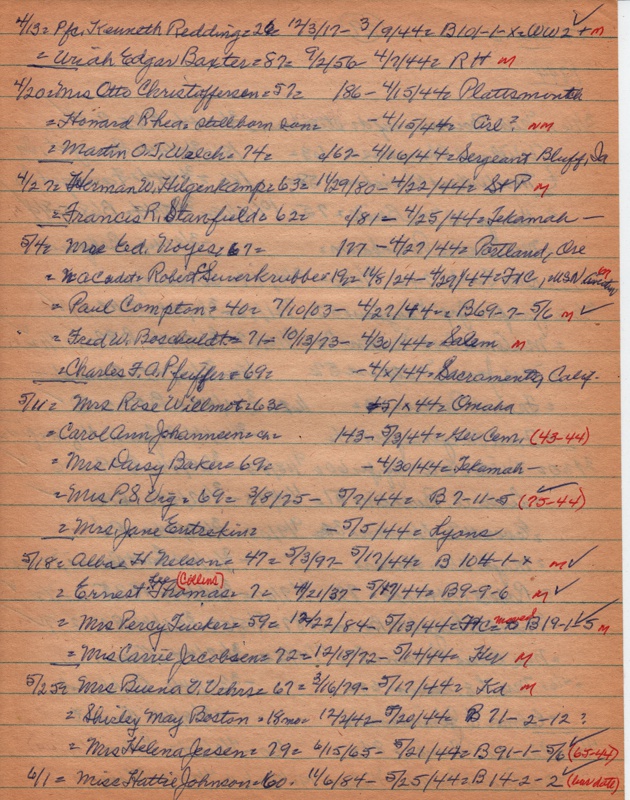 4/13 = Pfc. Kenneth Redding = 26 12/3/17 - 3/9/44 = B101-1-x = WW2 + M
= Uriah Edgar Baxter = 87 = 9/2/56 - 4/7/44 = R H M
4/20 = Mrs Otto Christoffersen = 57 = /86 - 4/15/44 = Plattsmouth
= Howard Rhea, stillborn son = - 4/15/44 = Ore ? NM
= Martin O.J. Welch = 74 = /67 - 4/16/44 = Sergeant Bluff, Ia
4/27 = Herman W. Hilgenkamp = 63 = 11/29/80 - 4/22/44 = St P M
= Francis R. Stanfield = 62 = /81 - 4/25/44 = Tekamah -
5/4 = Mrs Ed. Noyes, 67 = 177 - 4/27/44 = Portland, Ore
= Robert Suverkrubbe = 19 = 11/8/24 - 4/29/44 =
= Paul Compton = 40 = 7/10/03 - 4/27/44 = B69-7-5/6 M
= Fred W. Boschuldt = 71 - 10/13/73 - 4/30/44 = Salem M
= Charles F. A. Pfeiffer = 69 = - 4/x/44 = Sacramento, Calif.
5/11 = Mrs Rose Willmot = 63 = 5/x/44 = Omaha
= Carol Ann Johannsen = ch = 143 - 5/3/44 = Ger Cem, (43-44)
= Mrs Daisy Baker = 69 = - 4/30/44 = Tekamah -
= Mrs P. S. = 69 = 3/8/75 - 5/7/44 = B 7-11-5 (75-44)
= Mrs, Jane Ertzekin = - 5/5/44 = Lyons
5/18 = H Nelson = 47 = 5/3/97 - 5/17/44 = B 104-1-x M
= Ernest Thomas (Collins) = 7 = 4/21/37 - = B9-9-6 M
= Mrs Percy Tucker = 59 = 12/22/84 - 5/13/44 = moved to B19-1-5 M
= Mrs Carrie Jacobsen = 72 = 12/18/72 - 5/14/44 = Her M
5/25 = Mrs Buena V. Vehrs = 67 = 3/16/79 - 5/17/44 = Kd M
= Shirley May Boston = 18 mo = 12/2/42 - 5/20/44 = B 71-2-12 ?
= Mrs Helena Jessen = 79 = 6/15/65 - 5/21/44 = B 91-1-5/6 (65-44)
6/1 = Miss Hattie Johnson = 60 = 11/6/84 - 5/25/44 = B 14-2-2 (has date)